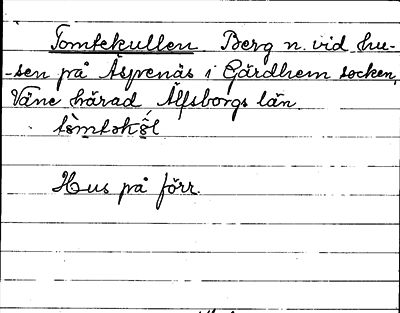 Tomtekullen Berg n. vid hu-
-sen på Äsprenäs i Gärdhem socken,
Väne härad Älfsborgs län.
Hus på förr.